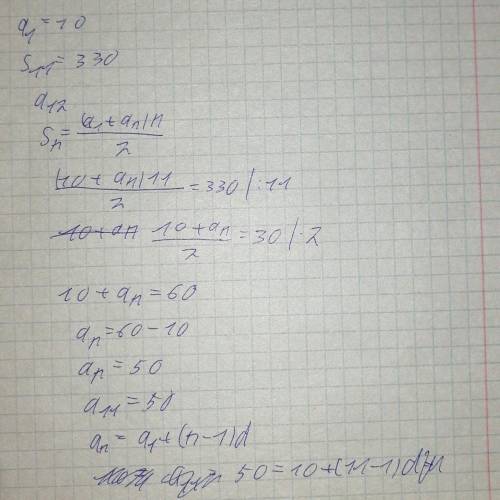 a₁ = 10
S₁₁ = 330
a₁₂
Sₙ = (a₁ + aₙ)n / 2
(10 + aₙ)11 / 2 = 330 / :11
10 + aₙ / 2 = 30 / ·2
10 + aₙ = 60
aₙ = 60 - 10
aₙ = 50
a₁₁ = 50
aₙ = a₁ + (n-1)d
50 = 10 + (11-1)d